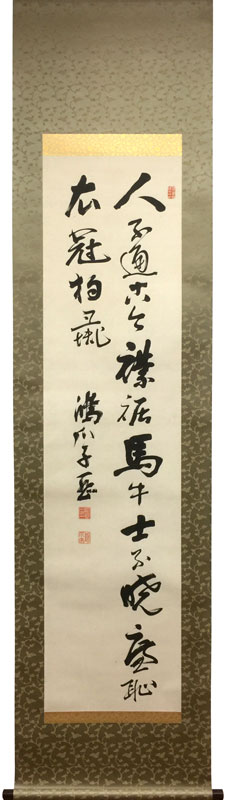 人不通古今襟裾馬牛士不暁廉恥
衣冠狗彘
鴻爪子